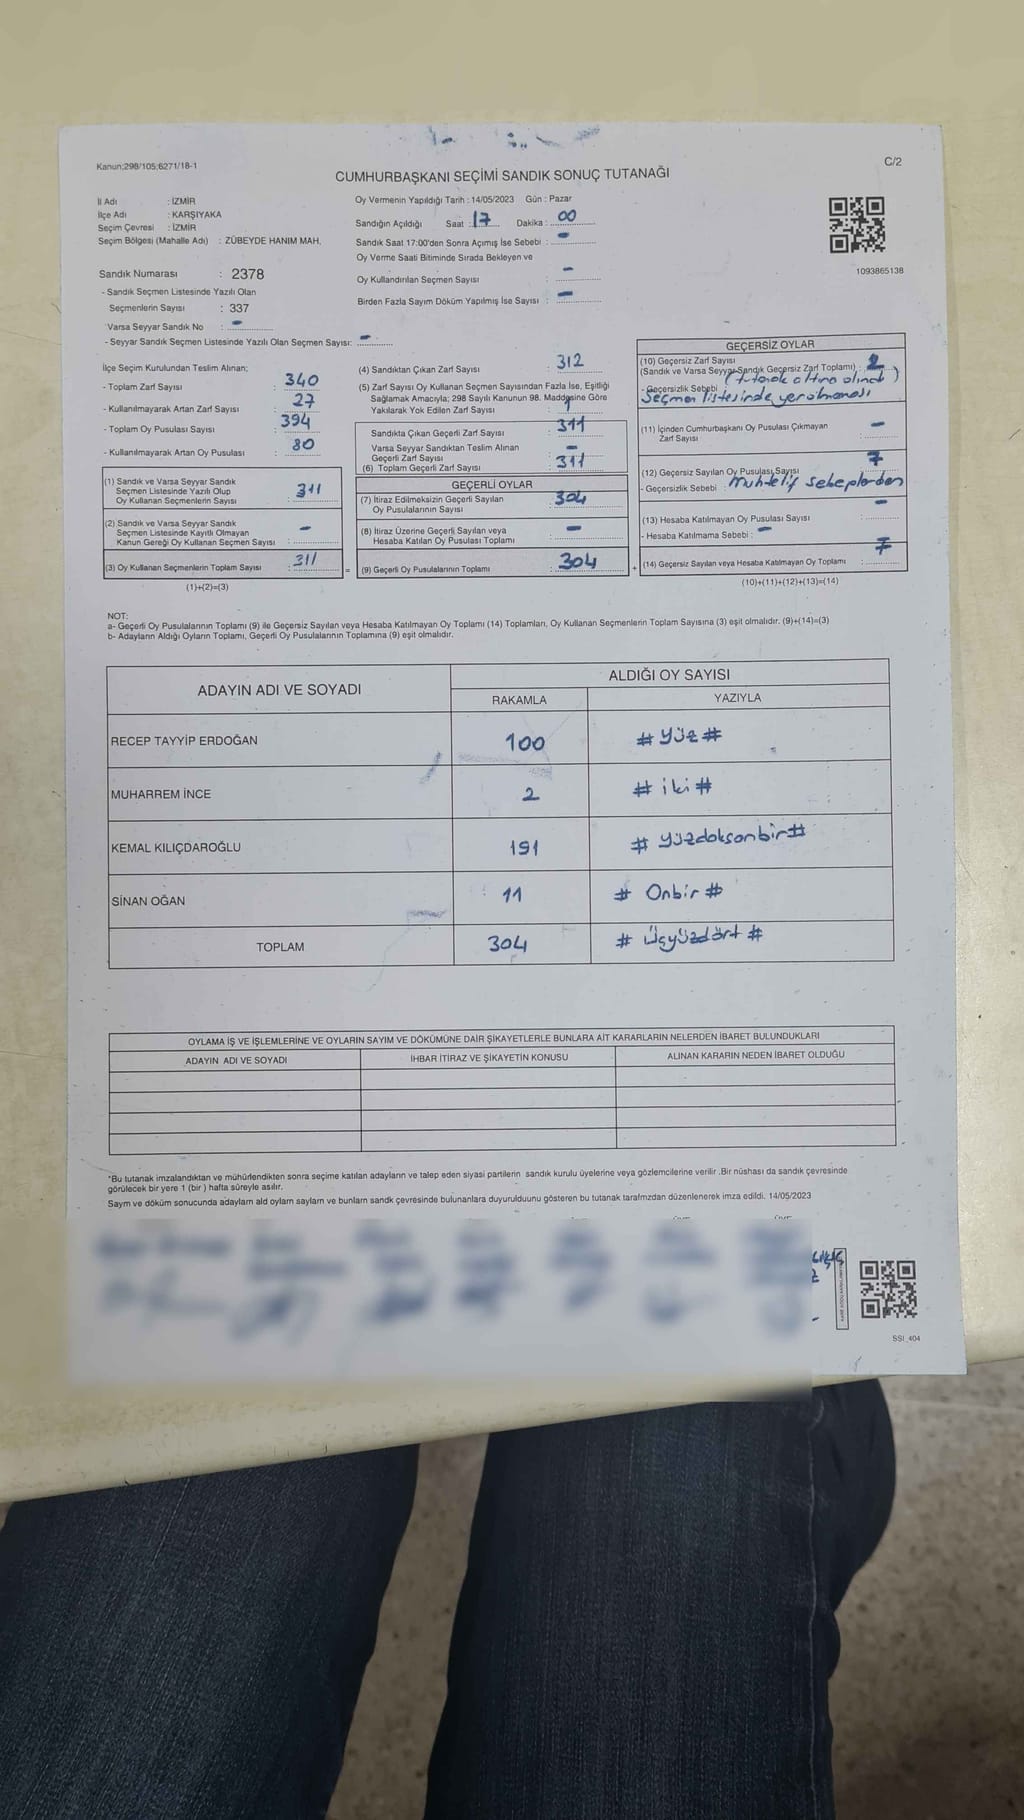 Kanun;298/105;6271/18-1
C/2
CUMHURBAŞKANI SEÇİMİ SANDIK SONUÇ TUTANAĞI
İl Adı : İZMİR
İlçe Adı : KARŞIYAKA
Seçim Çevresi : İZMİR
Seçim Bölgesi (Mahalle Adı) : ZÜBEYDE HANIM MAH.
Sandık Numarası : 2378
- Sandık Seçmen Listesinde Yazılı Olan
Seçmenlerin Sayısı : 337
Varsa Seyyar Sandık No : -
- Seyyar Sandık Seçmen Listesinde Yazılı Olan Seçmen Sayısı: -
Oy Vermenin Yapıldığı Tarih : 14/05/2023 Gün : Pazar
Sandığın Açıldığı Saat : 17 Dakika : 00
Sandık Saat 17:00'den Sonra Açımış İse Sebebi : -
Oy Verme Saati Bitiminde Sırada Bekleyen ve
Oy Kullandırılan Seçmen Sayısı : -
Birden Fazla Sayım Döküm Yapılmış İse Sayısı : -
1093865138
İlçe Seçim Kurulundan Teslim Alınan;
- Toplam Zarf Sayısı : 340
- Kullanılmayarak Artan Zarf Sayısı : 27
- Toplam Oy Pusulası Sayısı : 394
- Kullanılmayarak Artan Oy Pusulası : 80
(1) Sandık ve Varsa Seyyar Sandık
Seçmen Listesinde Yazılı Olup
Oy Kullanan Seçmenlerin Sayısı : 311
(2) Sandık ve Varsa Seyyar Sandık
Seçmen Listesinde Kayıtlı Olmayan
Kanun Gereği Oy Kullanan Seçmen Sayısı : -
(3) Oy Kullanan Seçmenlerin Toplam Sayısı : 311
(1)+(2)=(3)
(4) Sandıktan Çıkan Zarf Sayısı : 312
(5) Zarf Sayısı Oy Kullanan Seçmen Sayısından Fazla İse, Eşitliği
Sağlamak Amacıyla; 298 Sayılı Kanunun 98. Maddesine Göre
Yakılarak Yok Edilen Zarf Sayısı : 1
Sandıkta Çıkan Geçerli Zarf Sayısı : 311
Varsa Seyyar Sandıktan Teslim Alınan
Geçerli Zarf Sayısı : -
(6) Toplam Geçerli Zarf Sayısı : 311
GEÇERLİ OYLAR
(7) İtiraz Edilmeksizin Geçerli Sayılan
Oy Pusulalarının Sayısı : 304
(8) İtiraz Üzerine Geçerli Sayılan veya
Hesaba Katılan Oy Pusulası Toplamı : -
(9) Geçerli Oy Pusulalarının Toplamı : 304
GEÇERSİZ OYLAR
(10) Geçersiz Zarf Sayısı
(Sandık ve Varsa Seyyar Sandık Geçersiz Zarf Toplamı) :
- Geçersizlik Sebebi : (tutanak altına alındı)
Seçmen listesinde yer olmaması
(11) İçinden Cumhurbaşkanı Oy Pusulası Çıkmayan
Zarf Sayısı : -
(12) Geçersiz Sayılan Oy Pusulası Sayısı : 7
- Geçersizlik Sebebi : Muhtelif sebeplerden
(13) Hesaba Katılmayan Oy Pusulası Sayısı : -
- Hesaba Katılmama Sebebi : -
(14) Geçersiz Sayılan veya Hesaba Katılmayan Oy Toplamı : 7
(10)+(11)+(12)+(13)=(14)
NOT:
a- Geçerli Oy Pusulalarının Toplamı (9) ile Geçersiz Sayılan veya Hesaba Katılmayan Oy Toplamı (14) Toplamları, Oy Kullanan Seçmenlerin Toplam Sayısına (3) eşit olmalıdır. (9)+(14)=(3)
b- Adayların Aldığı Oyların Toplamı, Geçerli Oy Pusulalarının Toplamına (9) eşit olmalıdır.
ADAYIN ADI VE SOYADI ALDIĞI OY SAYISI
RAKAMLA YAZIYLA
RECEP TAYYİP ERDOĞAN 100 # Yüz #
MUHARREM İNCE 2 # iki #
KEMAL KILIÇDAROĞLU 191 # yüzdoksanbir #
SİNAN OĞAN 11 # Onbir #
TOPLAM 304 # Üçyüzdört #
OYLAMA İŞ VE İŞLEMLERİNE VE OYLARIN SAYIM VE DÖKÜMÜNE DAİR ŞİKAYETLERLE BUNLARA AİT KARARLARIN NELERDEN İBARET BULUNDUKLARI
ADAYIN ADI VE SOYADI İHBAR İTİRAZ VE ŞİKAYETİN KONUSU ALINAN KARARIN NEDEN İBARET OLDUĞU
*Bu tutanak imzalandıktan ve mühürlendikten sonra seçime katılan adayların ve talep eden siyasi partilerin sandık kurulu üyelerine veya gözlemcilerine verilir .Bir nüshası da sandık çevresinde
görülecek bir yere 1 (bir ) hafta süreyle asılır.
Saym ve döküm sonucunda adaylarn ald oylarn saylarn ve bunlarn sandk çevresinde bulunanlara duyurulduunu gösteren bu tutanak tarafmzdan düzenlenerek imza edildi. 14/05/2023
SSI_404